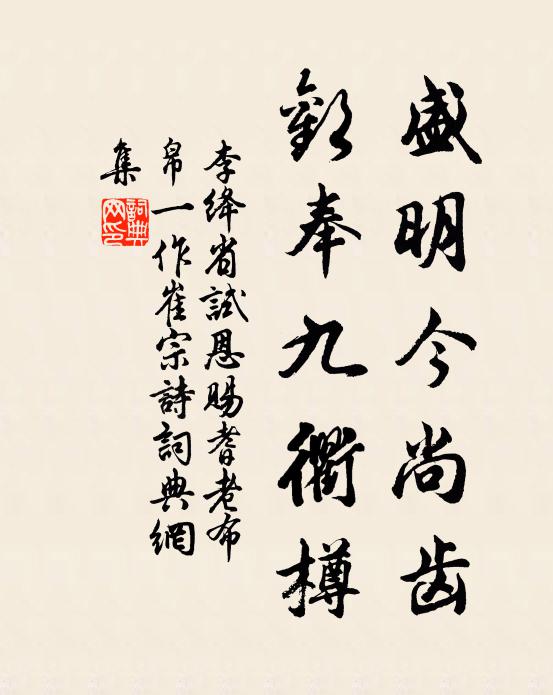 盛明今尚齿
歡奉九衢樽
李绛省試恩賜耆老布
帛一作崔宗詩詞典網
集
詞典網印